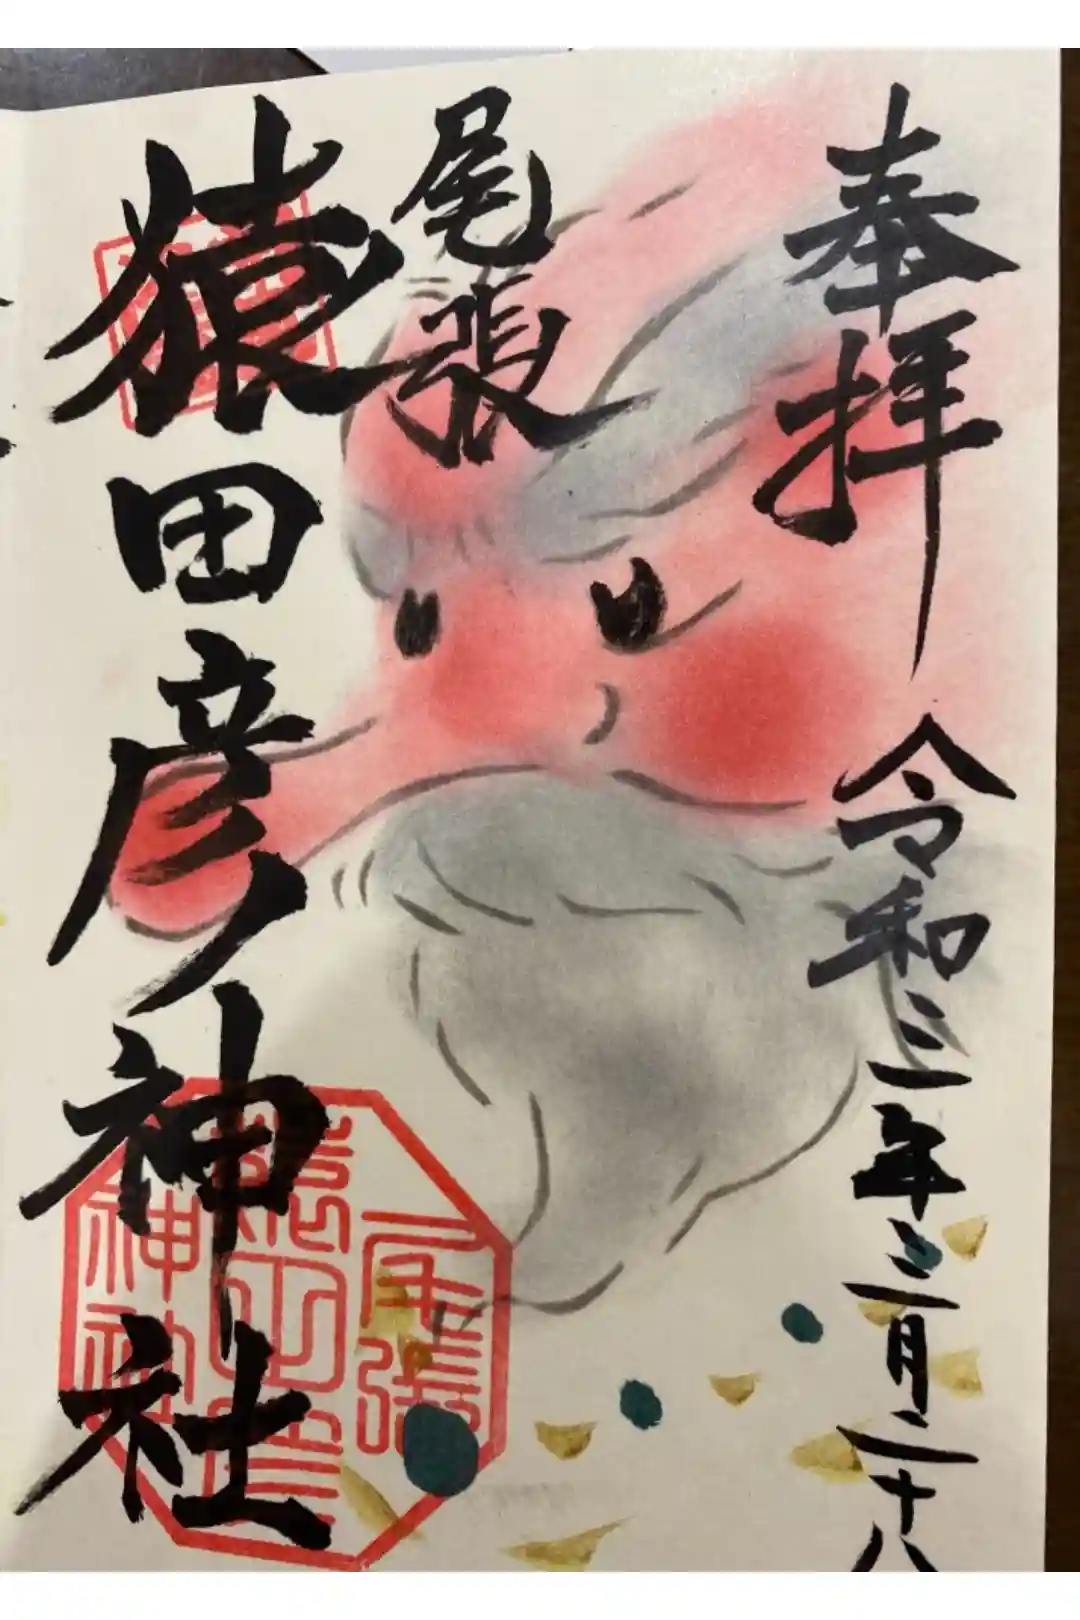 奉拝
令和三年三月二十八
尾張
猿田彦神社
尾張
猿田彦
神社